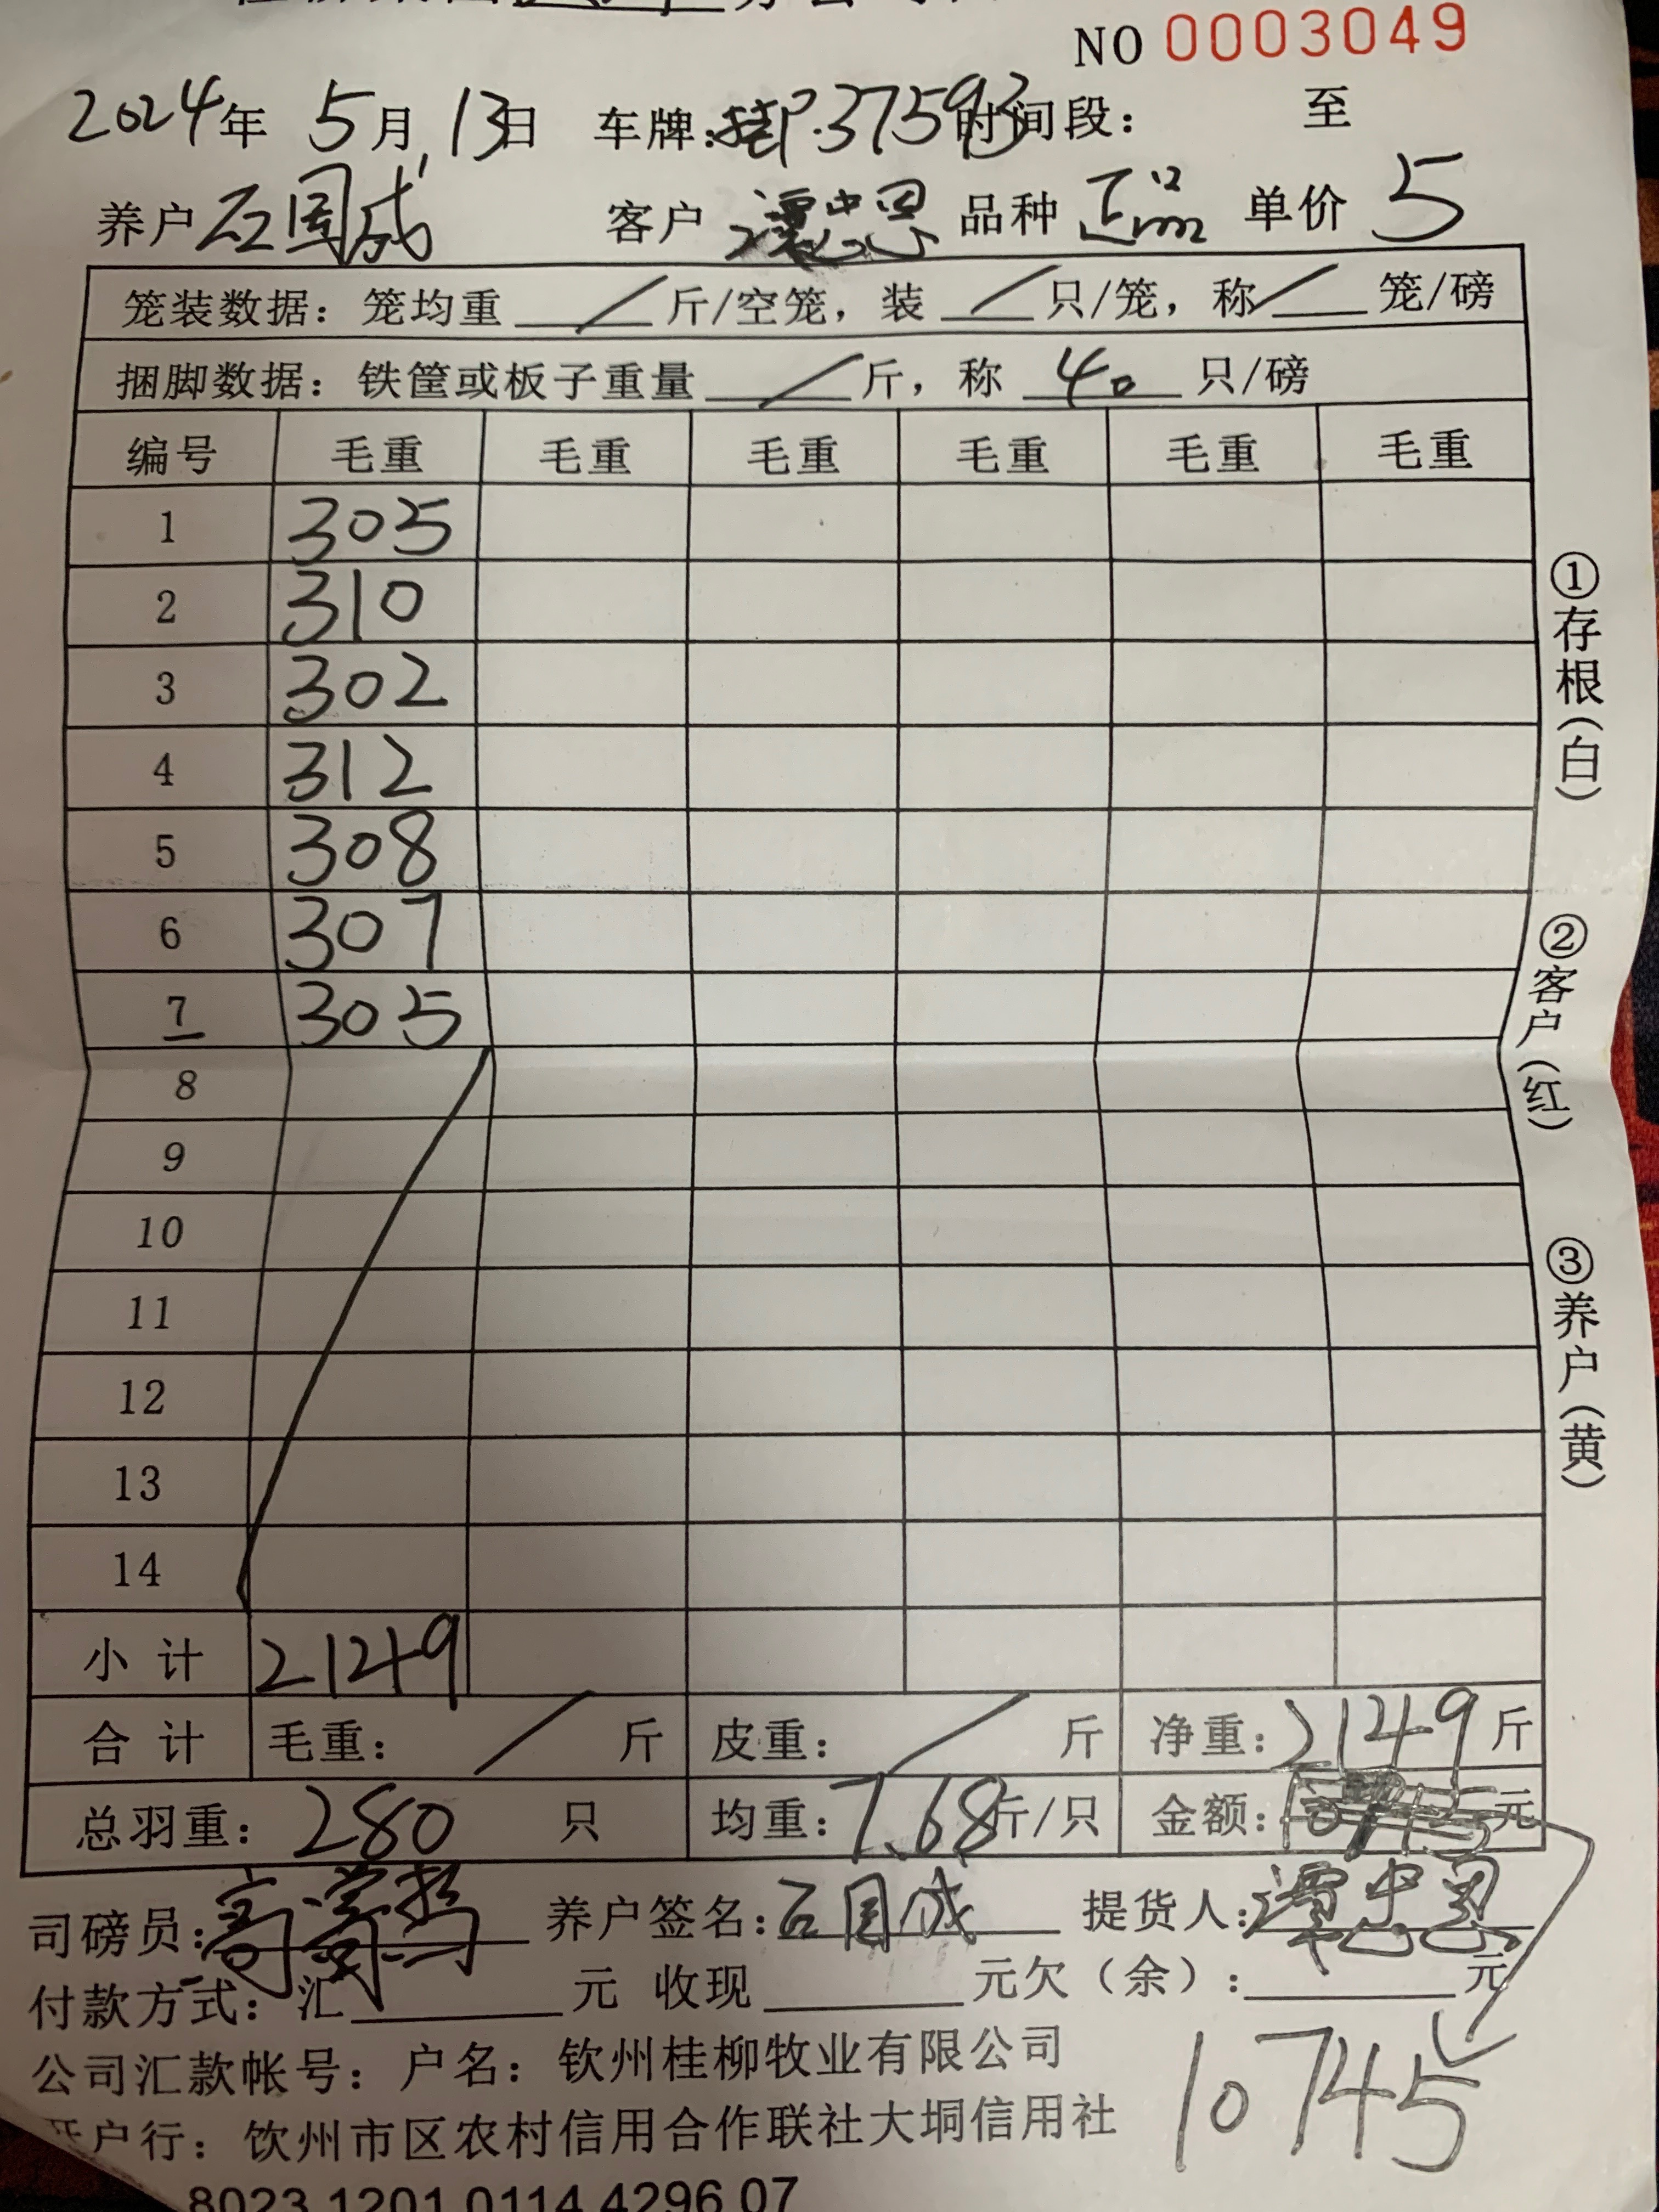 NO 0003049
2024年 5月 13日 车牌: P.37593 时间段: 至
养户 石国成 客户 谭忠恩 品种 正品 单价 5
笼装数据: 笼均重 / 斤/空笼, 装 / 只/笼, 称 / 笼/磅
捆脚数据: 铁筐或板子重量 / 斤, 称 40 只/磅
编号 毛重 毛重 毛重 毛重 毛重 毛重
1 305
2 310
3 302
4 312
5 308
6 307
7 305
8
9
10
11
12
13
14
小计 2149
合计 毛重: / 斤 皮重: / 斤 净重: 2149 斤
总羽重: 280 只 均重: 7.68 斤/只 金额: 元
司磅员: 养户签名: 石国成 提货人: 谭忠恩
付款方式: 汇 元 收现 元欠(余): 元
10745
公司汇款帐号: 户名: 钦州桂柳牧业有限公司
开户行: 钦州市区农村信用合作联社大垌信用社
8023 1201 0114 4296 07
①存根(白)
②客户(红)
③养户(黄)